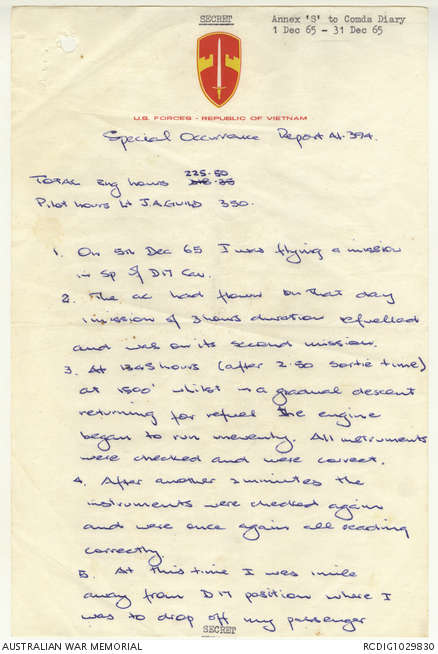 SECRET
Annex 'S' to Comds Diary
1 Dec 65 - 31 Dec 65
U.S. FORCES - REPUBLIC OF VIETNAM
Special Occurrence Report A1-394.
225.50
TOTAL Eng hours
Pilot hours Lt J.A. GUILD 350.
1. On 5th Dec 65 I was flying a mission
in sp of D17 Cav.
2. The ac had flown on that day
1 mission of 3 hours duration refuelled
and was on its second mission.
3. At 1345 hours (after 2.50 sortie time)
at 1500' whilst in a gradual descent
returning for refuel the engine
began to run unevenly. All instruments
were checked and were correct.
4. After another 2 minutes the
instruments were checked again
and were once again all reading
correctly.
5. At this time I was 1 mile
away from D17 position where I
was to drop off my passenger
SECRET
AUSTRALIAN WAR MEMORIAL
RCDIG1029830